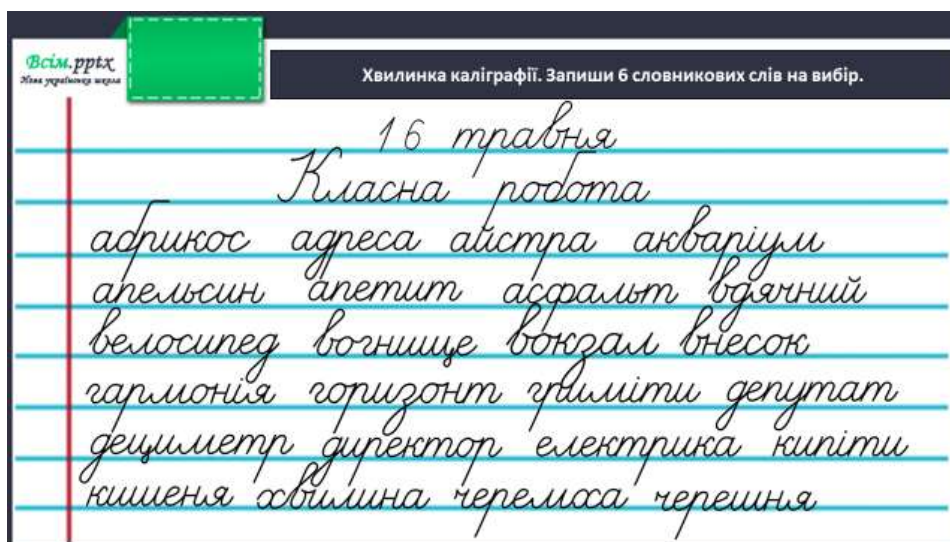 Всім.pptx
Нова українська школа
Хвилинка каліграфії. Запиши 6 словникових слів на вибір.
16 травня
Класна робота
абрикос адреса айстра акваріум
апельсин апетит асфальт вдячний
велосипед вогнище вокзал внесок
гармонія горизонт гриміти депутат
дециметр директор електрика кипіти
кишеня хвилина черемха черешня